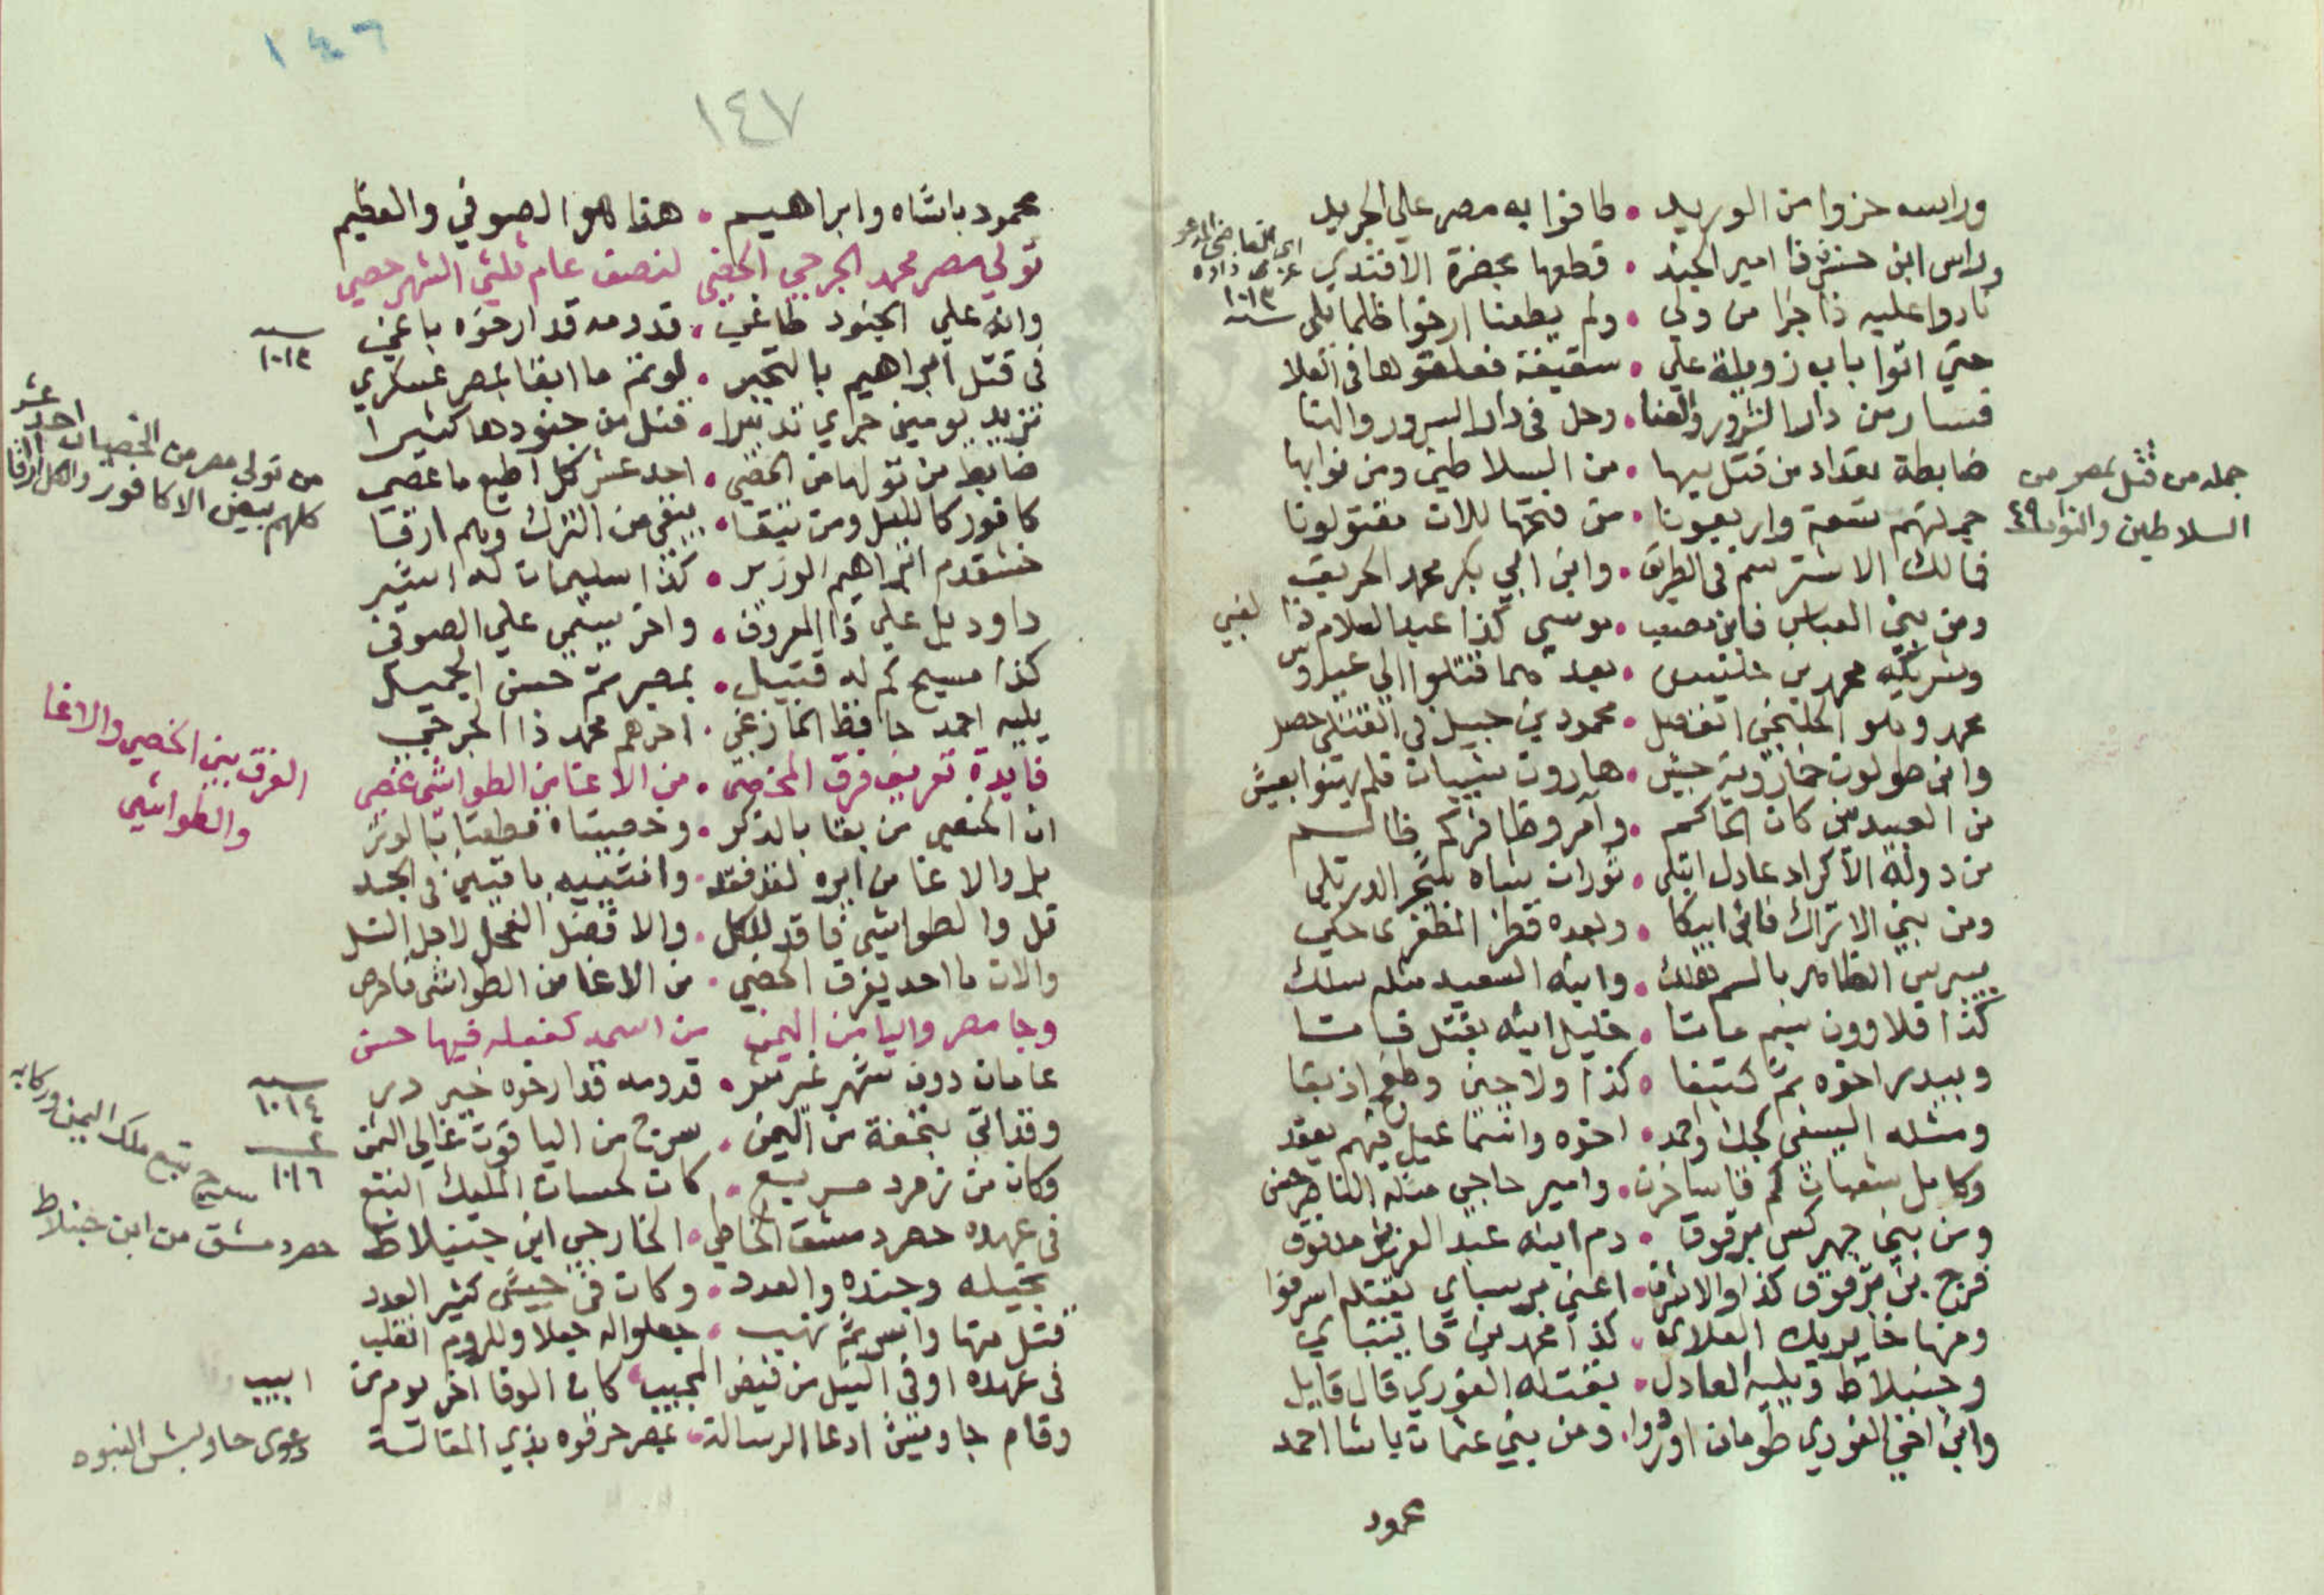 وراسه حزوا من الوريد • طافوا به مصر علي الجريد
وراس ابن خسرو ذا امير الجند • قطعها بحضرة الافندي
نادوا عليه ذا جزا من ولي • ولم يطعنا ارخوا ظلما بلي
حتي اتوا باب زويلة علي • سقيفة فعلقوها في العلا
فسار من دار الشرور والعنا • وحل في دار السرور والهنا
ضابطة تعداد من قتل بها • من السلاطين ومن نوابها
جملتهم تسعة واربعونا • من فتحها للان مقتولونا
فمالك الاشتر سم في الطريق • وابن ابي بكر محمد الحريق
ومن بني العباس فابن مصعب • موسي كذا عبد السلام ذا لغبي
وشريكه محمد بن • بعد هما قتلوا الي
محمد وتلو الخلنجي انفصل • محمود بن جبيل في القتلي حصل
وابن طولون خمارويه جيش • هارون شيبان فلم يهنوا بعيش
من العبيديين كان الحاكم • وآمر وظافر كم ظالم
من دولة الاكراد عادل ابتلي • توران شاه
ومن بني الاتراك فاني ايبكا • وبعده قطز المظفري حكي
بيبرس الظاهر بالسم هلك • وابنه السعيد مثله سلك
كذا قلاوون بسم ماتا • خليل ابنه بقتل فاتا
وبيدرا اخوه ثم كتبغا • كذا ولاجين وطغج اذ بغا
ومثله السيفي كجك واحمد • اخوه واسماعيل فيهم يعقد
وكامل شعبان ثم • وامير حاجي مثله الناصر حسن
ومن بني جهركس برقوق • دم ابنه عبد العزيز مدفوق
فرج بن برقوق كذا والاشرف • اعني برسباي بقتله اسرفوا
ومنها خاير بيك العلاي • كذا محمد بن قايتباي
وجنبلاط ويليه العادل • بقتله الغوري قال قايل
وابن اخي الغوري طومان • ومن بني عثمان باشا احمد
محمود
القاضي
زاده
سنة ١٠١٣
جملة من قتل بمصر من
السلاطين والنواب ٤٩
١٤٦
١٤٧
محمود باشاه وابراهيم • هذا هو الصوفي والعظيم
تولي مصر محمد الجرجي الخصي لنصف عام ثلثي الشهر حصي
وانه علي الجنود طاغي • قدومه قد ارخوه باغي
في قتل ابراهيم بالتجبر • لو تم ما ابقا بمصر عسكري
تزيد يومين جراي تدبيرا • قتل من جنودها كثيرا
ضابط من تولها من الخصي • احد عشر كل اطيع ما عصي
كافور كالليل ومن تبقا • بيض من الترك وهم ارقا
خشقدم ابراهيم الوزير • كذا سليمان له اشير
داود بل علي ذا المعروف • واخر يسمي علي الصوفي
كذا مسيح كم له قتيل • بمصر ثم حسن الجميل
يليه احمد حافظ الخازغي • اخرهم محمد ذا الجرجي
فايدة تعريف فرق المخصي • من الاغا من الطواشي خصي
ان الخصي من بقا بالذكر • وخصيتاه قطعتا بالوتر
بل والاغا من ايره لقد فقد • وانثييه باقتين في الجسد
قل والطواشي فاقد للكل • والافضل الفحل لاجل النسل
والان ما احد يفرق الخصي • من الاغا من الطواشي فاحرص
وجا مصر واليا من اليمن من اسمه كفعله فيها حسن
عامان دون شهر • قدومه قد ارخوه خير
وقد اتي بتحفة من اليمن • سرج من الياقوت غالي الثمن
وكان من زمرد مسريع • كان لحسان المليك التبع
في عهده حصر دمشق الخاطي • الخارجي ابن جنبلاط
بخيله وجنده والعدد • وكان في جيش كثير العدد
قتل منها واسر ثم نهب • جعلوا له جعلا وللروم انقلب
في عهده اوفي النيل من فيض المجيب • كان الوفا اخر يوم من ابيب
وقام جاويش ادعا الرسالة • بمصر حرقوه بذي المقالة
سنة ١٠١٣
من تولي مصر من الخصيان احد عشر
كلهم بيض الا كافور والكل ارقا
الفرق بين الخصي والاغا
والطواشي
سنة ١٠١٤
١٠١٦
سرج تبع ملك اليمن وركابه
حصر دمشق من ابن جنبلاط
دعوي جاويش النبوه